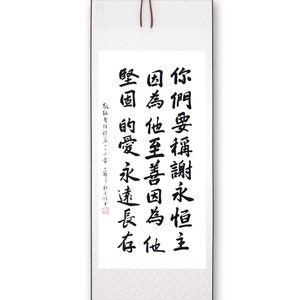 你們要稱謝永恒主
因為他至善因為他
堅固的愛永遠長存